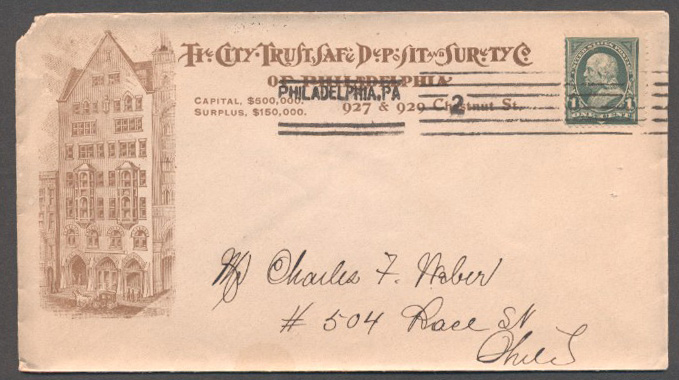 The City Trust, Safe Deposit and Surety Co.
OF PHILADELPHIA
PHILADELPHIA, PA
CAPITAL, $500,000.
SURPLUS, $150,000.
927 & 929 Chestnut St.
2
1 1
ONE CENT
Charles F.
# 504 Race St
Phila